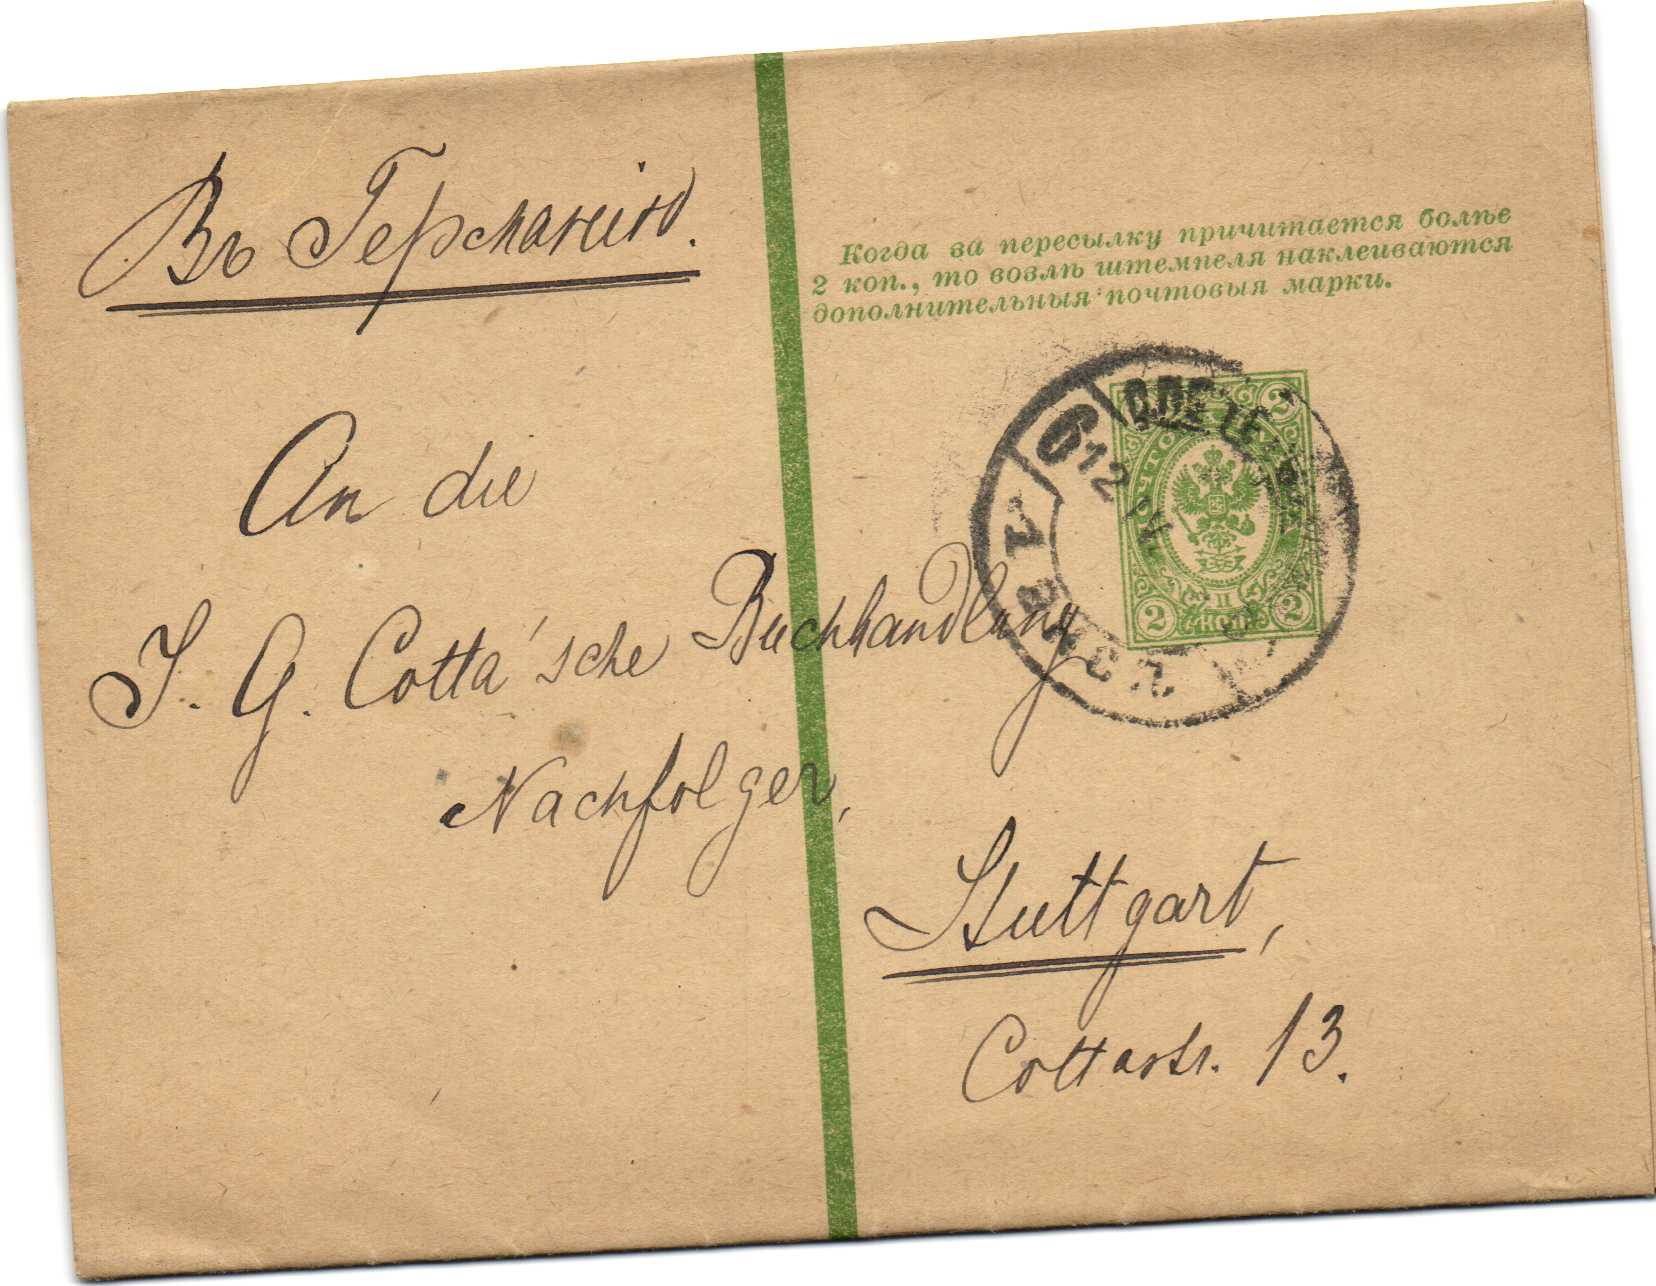 Въ Германію.
Когда за пересылку причитается болѣе
2 коп., то возлѣ штемпеля наклеиваются
дополнительныя почтовыя марки.
An die
J. G. Cotta'sche Buchhandlung
Nachfolger,
Stuttgart,
Cottastr. 13.
6
12 IV
2
2
2